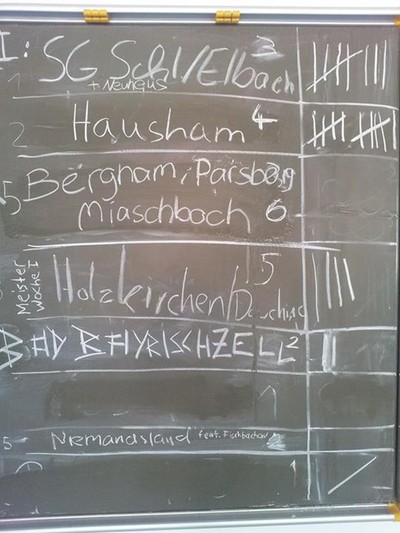 I: SG Schl/Elbach 3
+ Neuhaus
2 Hausham 4
5 Bergham, Parsberg
Miaschboch 6
Meister
Woche I
Holzkirchen 5
BAD BAYRISCHZELL 2
1
5 Niemandsland feat. Fischbachau
1